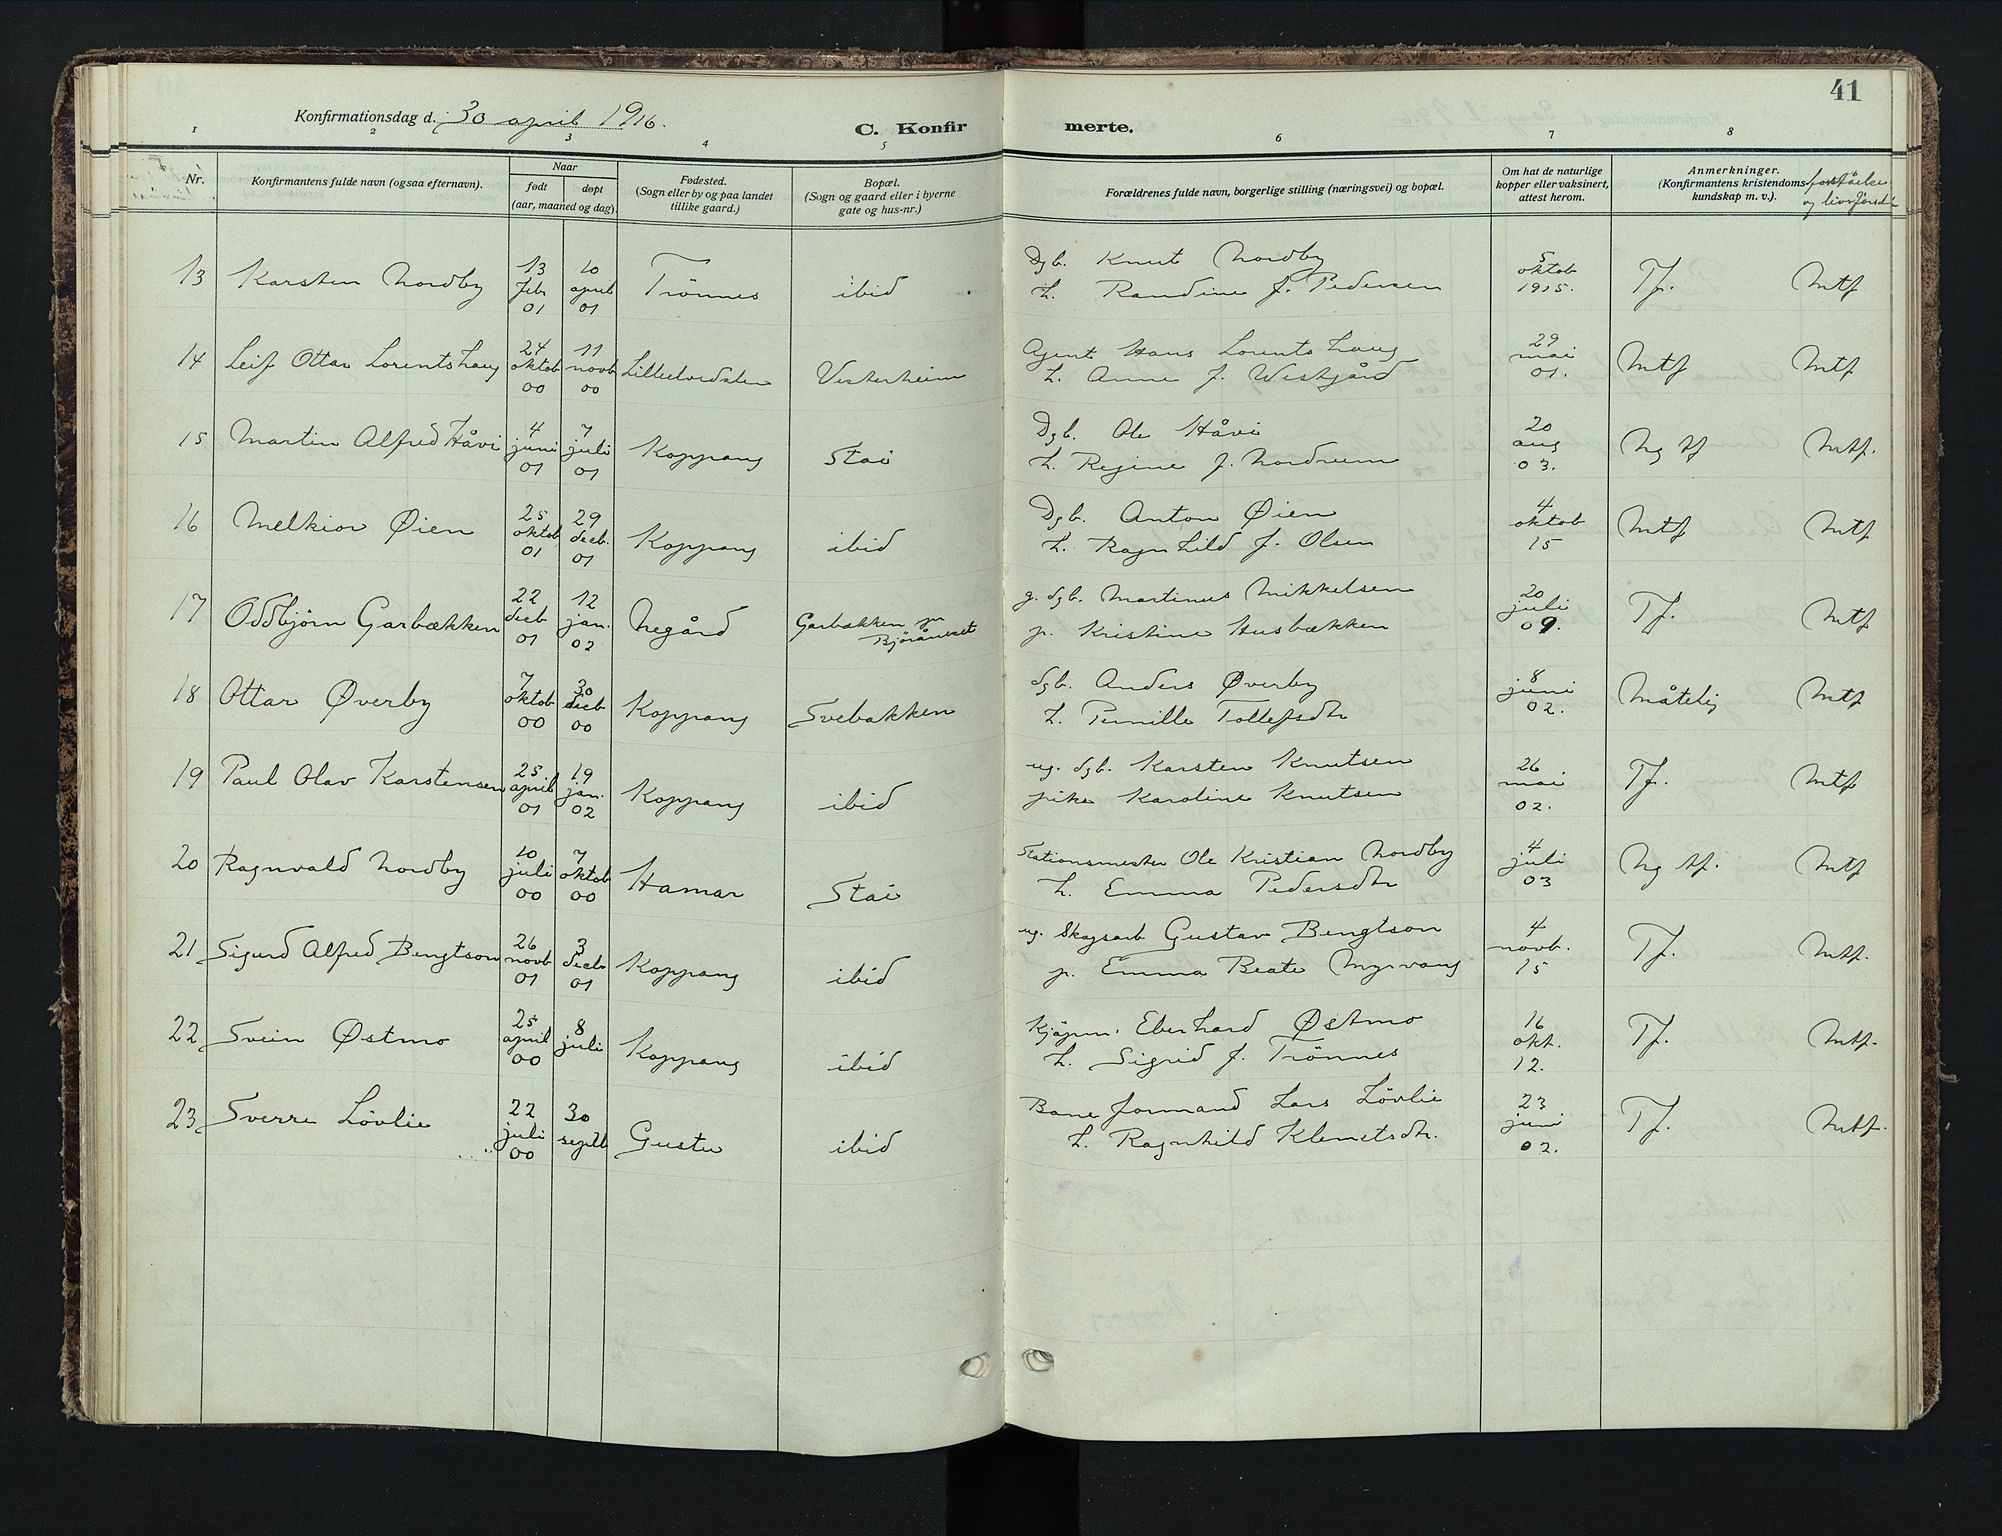 41
Konfirmationsdag d. 30 april 1916.
C. Konfirmerte.
1 2 3 4 5 6 7 8
Nr.
Konfirmantens fulde navn (ogsaa efternavn).
Naar
født døpt
(aar, maaned og dag).
Fødested.
(Sogn eller by og paa landet
tillike gaard.)
Bopæl.
(Sogn og gaard eller i byerne
gate og hus-nr.)
Forældrenes fulde navn, borgerlige stilling (næringsvei) og bopæl.
Om hat de naturlige
kopper eller vaksinert,
attest herom.
Anmerkninger.
(Konfirmantens kristendoms
kundskap m. v.).
13 Karsten Nordby 13 febr 01 10 april 01 Trönnes ibid
Dgb. Knut Nordby
h. Randine f. Pedersen
5 oktob 1915. Tf. Mtf
14 Leif Ottar Lorentshaug 24 oktob 00 11 novb 00 Lilleelvedalen Vesterheim
Agent Hans Lorentshaug
h. Anne f. Westgård
29 mai 01. Mtf Mtf
15 Martin Alfred Håvi 4 juni 01 7 juli 01 Koppang Stai
Dgb. Ole Håvi
h. Regine f. Nordrum
20 aug 03. Ng tf Mtf.
16 Melkior Øien 25 oktob 01 29 decb. 01 Koppang ibid
Dgb. Anton Øien
h. Ragnhild f. Olsen
4 oktob 15 Mtf Mtf
17 Oddbjörn Garbækken 22 decb 01 12 jan. 02 Negård Garbækken pr Björåneset
g. dgb. Martinus Mikkelsen
p. Kristine Husbækken
20 juli 09. Tf. Mtf
18 Ottar Øverby 7 oktob 00 30 decb 00 Koppang Svebakken
dgb. Anders Øverby
h. Pernille Tollefsdtr
8 juni 02. Måtelig Mtf
19 Paul Olav Karstensen 25. april 01 19 jan. 02 Koppang ibid
ug. dgb. Karsten Knutsen
pike Karoline Knutsen
26 mai 02. Tf. Mtf
20 Ragnvald Nordby 10 juli 00 7 oktob 00 Hamar Stai
Stationsmester Ole Kristian Nordby
h. Emma Pedersdtr
4 juli 03 Ng tf. Mtf
21 Sigurd Alfred Bengtson 26 novb 01 3 decb 01 Koppang ibid
ug. Skogsarb Gustav Bengtson
p. Emma Beate Myrvang
4 novb. 15 Tf. Mtf.
22 Svein Østmo 25 april 00 8 juli Koppang ibid
Kjøpm. Eberhard Østmo
h. Sigrid f. Trönnes
16 okt. 12. Tf. Mtf.
23 Sverre Lövlie 22 juli 00 30 septb Gustu ibid
Baneformand Lars Lövlie
h. Ragnhild Klemetsdtr.
23 juni 02. Tf. Mtf.